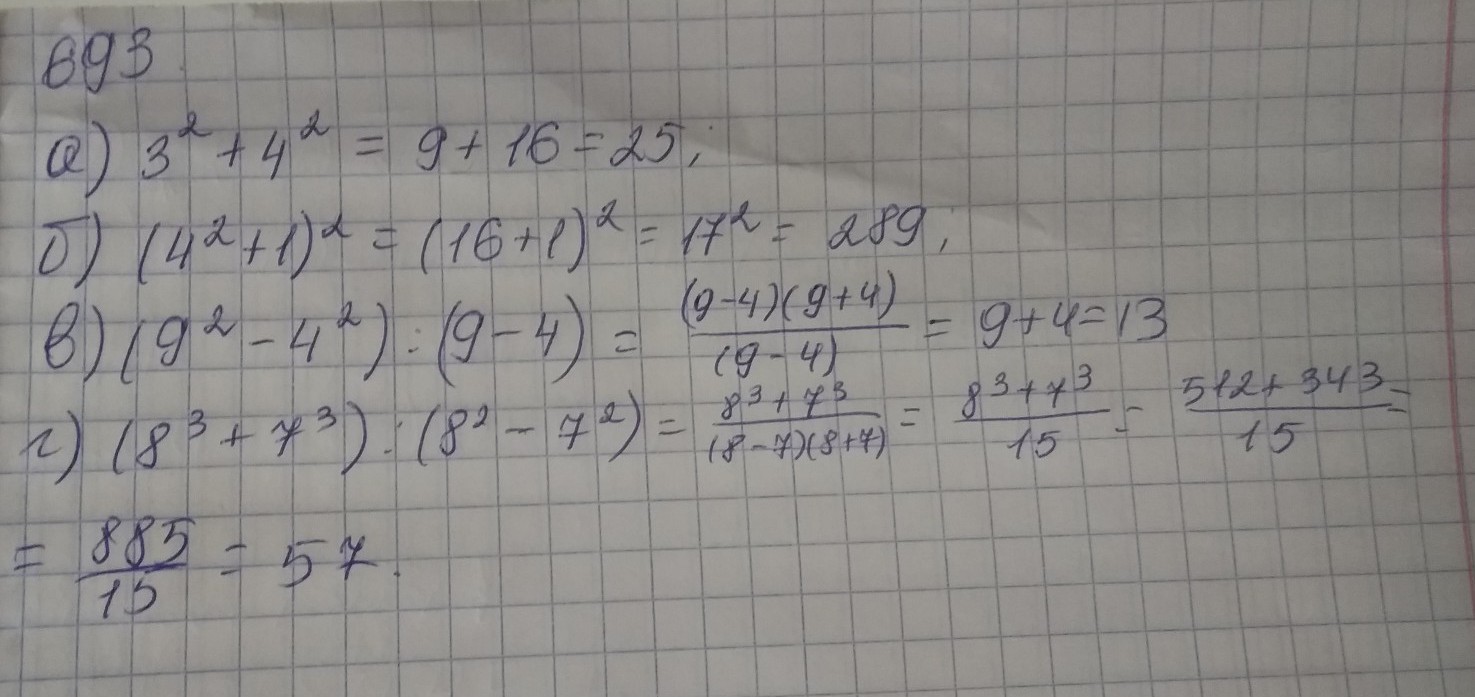 693.
а) 3² + 4² = 9 + 16 = 25;
б) (4² + 1)² = (16 + 1)² = 17² = 289;
в) (9² - 4²) : (9 - 4) = (9-4)(9+4)/(9-4) = 9 + 4 = 13
г) (8³ + 7³) : (8² - 7²) = 8³+7³/(8-7)(8+7) = 8³+7³/15 = 512+343/15 =
= 885/15 = 57.